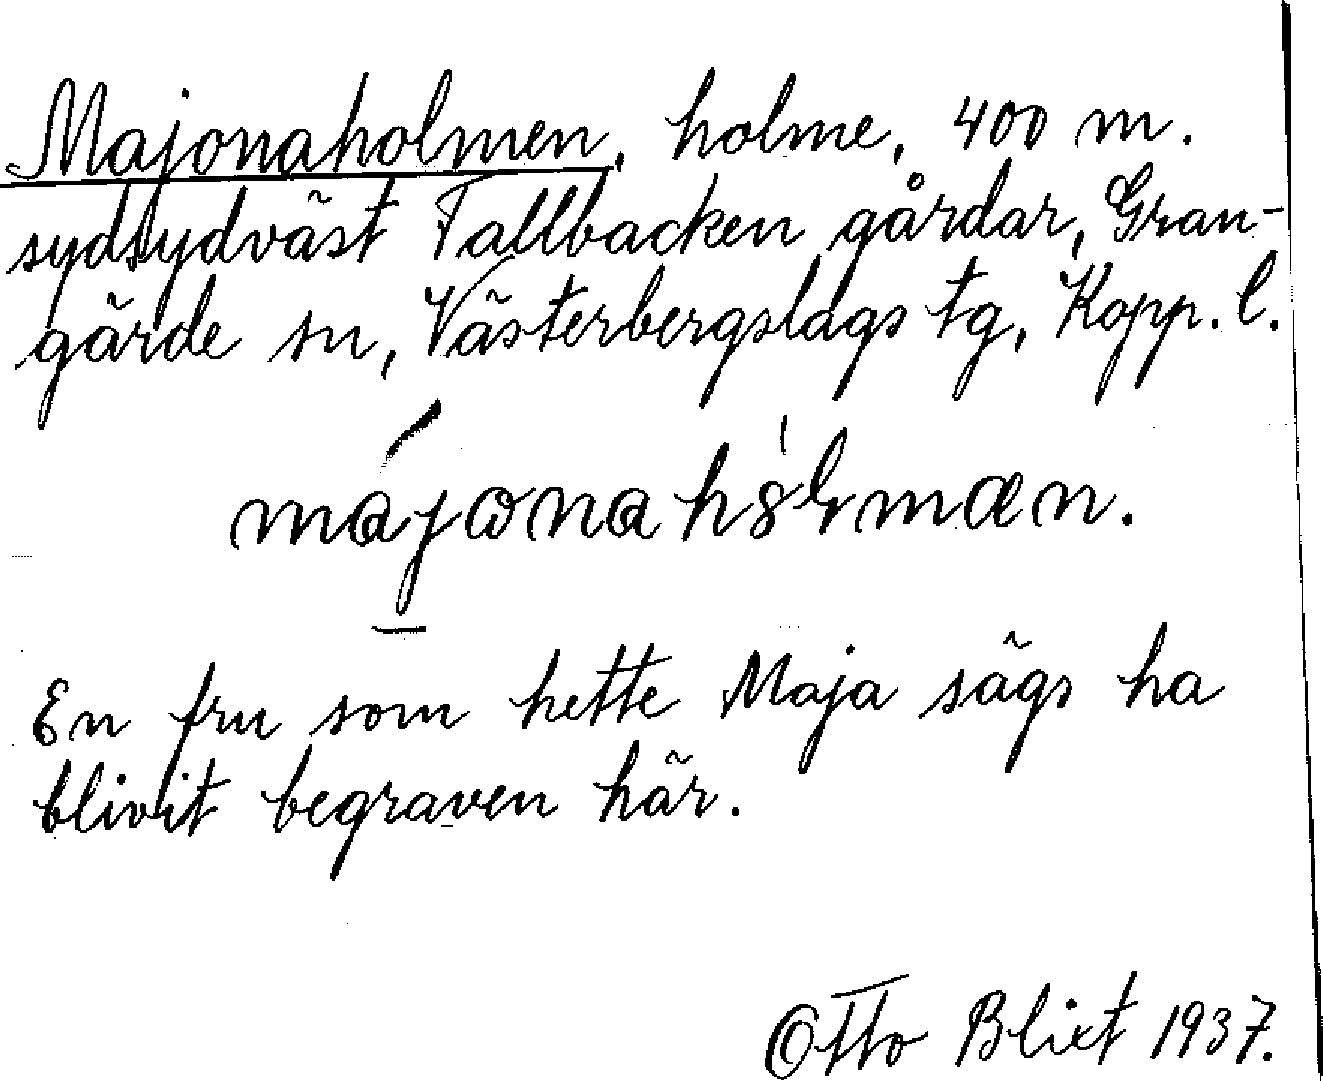 Majonaholmen, holme, 400 m.
sydsydväst Fallbacken gårdar, Gran-
gärde sn, Västerbergslags tg, Kopp. l.
En fru som hette Maja sägs ha
blivit begraven här.
Otto Blixt 1937.